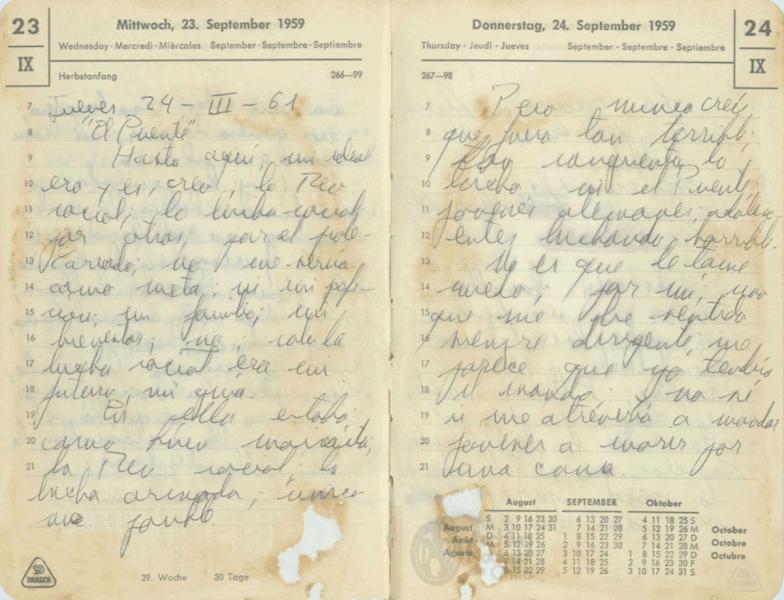 23
IX
Mittwoch, 23. September 1959
Wednesday · Mercredi · Miércoles September · Septembre · Septiembre
Herbstanfang 266—99
7 Jueves 24 - III - 61
8 "El Puente"
9 Hasta aquí, mi ideal
10 era y es, creo, la Rev
11 social; la lucha social
12 por otros, por el prole-
13 tariado; no me servía
14 como meta, ni mi pa
15 mi familia; mi
16 bienestar; no, sólo la
17 lucha social era mi
18 futuro, mi
19 En ella estaba
20 como buen marxista,
21 la Rev social la
lucha armada, única
39. Woche 30 Tage
DRÄGER
Donnerstag, 24. September 1959
Thursday · Jeudi · Jueves September · Septembre · Septiembre
24
IX
267—98
7 Pero nunca creí
8 que fuera tan terrible,
9 tan sangrienta la
10 lucha; en el Puente,
11 jóvenes alemanes, adolesc
12 entes luchando horribl
13 Y es que le tome
14 miedo, por mi, uno
15 que me he sentido
16 siempre dirigente, me
17 parece que yo tendría
18 y no sé
19 si me atrevería a mandar
20 jóvenes a morir por
21 una causa.
August SEPTEMBER Oktober
S 2 9 16 23 30 6 13 20 27 4 11 18 25 S
August M 3 10 17 24 31 7 14 21 28 5 12 19 26 M October
Août D 4 11 18 25 1 8 15 22 29 6 13 20 27 D Octobre
Agosto M 5 12 19 26 2 9 16 23 30 7 14 21 28 M Octubre
6 13 20 27 3 10 17 24 1 8 15 22 29 D
7 14 21 28 4 11 18 25 2 9 16 23 30 F
8 15 22 29 5 12 19 26 3 10 17 24 31 S